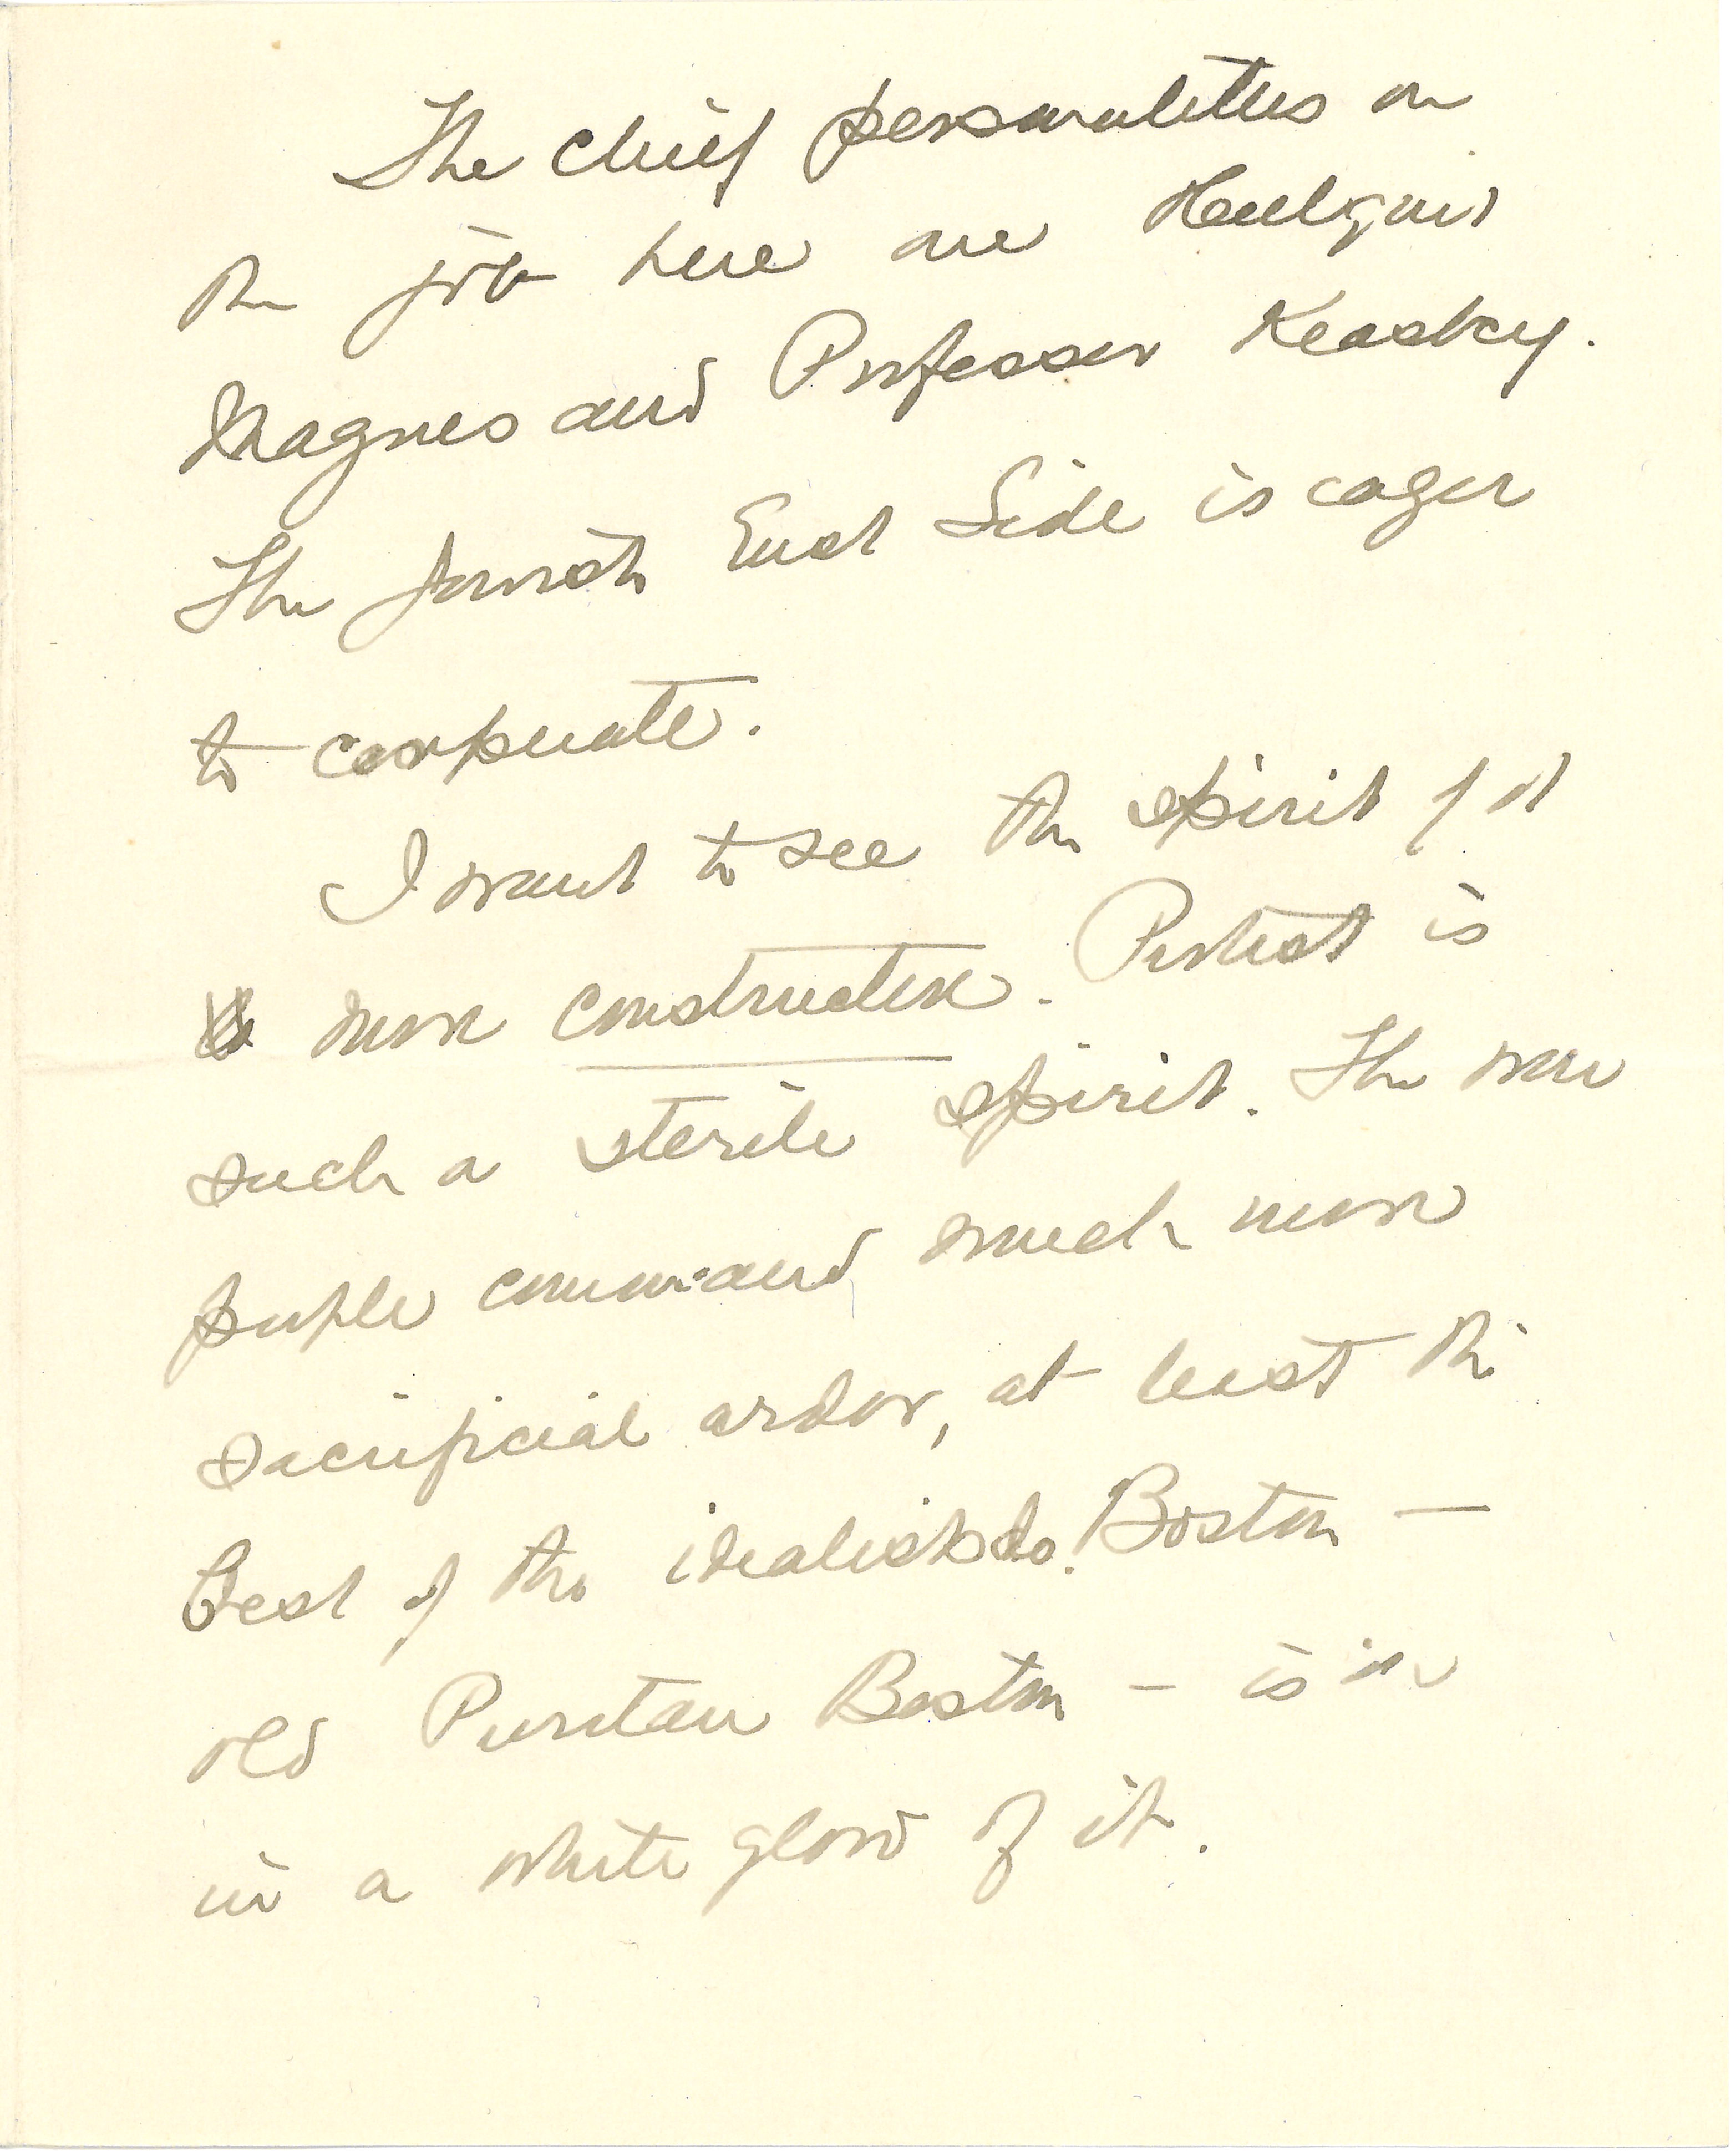 The chief personalities on
the job here are Hillquit
Magnes and Professor Keasbey.
The Jewish East Side is eager
to cooperate.
I want to see the spirit of it
more constructive. Protest is
such a sterile spirit. The war
people command much more
sacrificial ardor, at least the
best of the idealists do. Boston —
old Puritan Boston — is in
in a white glow of it.